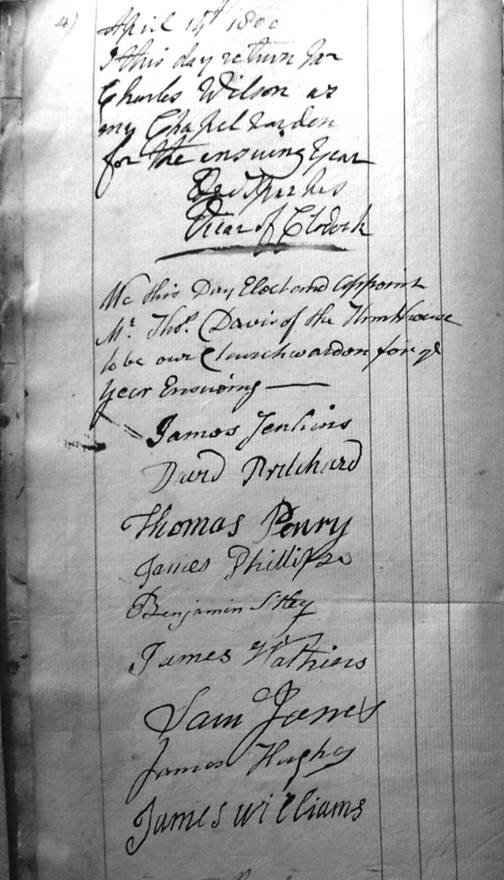 4)
April 14th 1800
I this day return Mr
Charles Wilson as
my Chapel warden
for the ensuing Year
Vicar of Clodock
We this Day Elect and appoint
Mr. Thos. Davis of the
to be our Churchwardon for ye
Year Ensuing —
James Jenkins
David Pritchard
Thomas Penry
James Phillips
Benjamin
James Watkins
Sam Jones
James Hughes
James williams